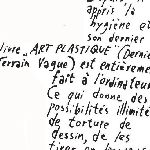 appris la
hygiène et
son dernier
livre „ART PLASTIQUE" (Dernier
Terrain Vague) est entièrement
fait à l'ordinateur
Ce qui donne des
possibilités illimité
de torture de
dessin, de les